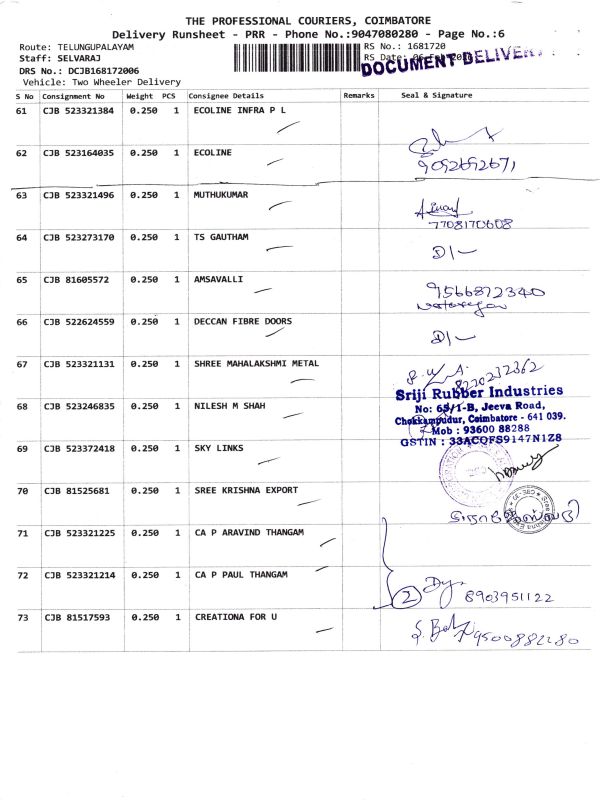 THE PROFESSIONAL COURIERS, COIMBATORE
Delivery Runsheet - PRR - Phone No.:9047080280 - Page No.:6
Route: TELUNGUPALAYAM
RS No.: 1681720
Staff: SELVARAJ
RS Date:
DOCUMENT DELIVERY
DRS No.: DCJB168172006
Vehicle: Two Wheeler Delivery
S No Consignment No Weight PCS Consignee Details Remarks Seal & Signature
61 CJB 523321384 0.250 1 ECOLINE INFRA P L
62 CJB 523164035 0.250 1 ECOLINE
9092692671
63 CJB 523321496 0.250 1 MUTHUKUMAR
7708170608
64 CJB 523273170 0.250 1 TS GAUTHAM
D/-
65 CJB 81605572 0.250 1 AMSAVALLI
9566872340
66 CJB 522624559 0.250 1 DECCAN FIBRE DOORS
D/-
67 CJB 523321131 0.250 1 SHREE MAHALAKSHMI METAL
8220232362
68 CJB 523246835 0.250 1 NILESH M SHAH
Sriji Rubber Industries
No: 65/1-B, Jeeva Road,
Chokkampudur, Coimbatore - 641 039.
Mob : 93600 88288
GSTIN : 33ACQFS9147N1Z8
69 CJB 523372418 0.250 1 SKY LINKS
70 CJB 81525681 0.250 1 SREE KRISHNA EXPORT
71 CJB 523321225 0.250 1 CA P ARAVIND THANGAM
72 CJB 523321214 0.250 1 CA P PAUL THANGAM
2 8903951122
73 CJB 81517593 0.250 1 CREATIONA FOR U
9500882280